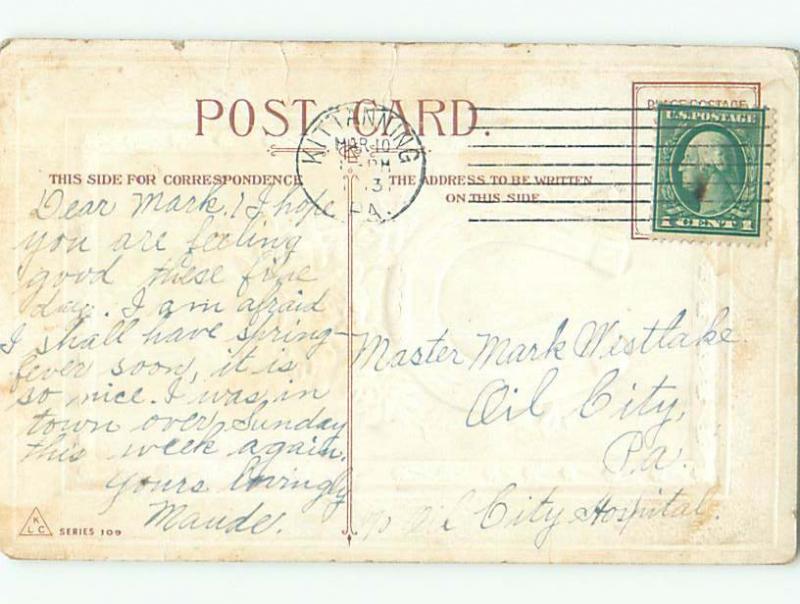 POST CARD.
PLACE POSTAGE
U.S. POSTAGE
1 CENT 1
KITTANNING
MAR 10
PM
3
PA.
THIS SIDE FOR CORRESPONDENCE
THE ADDRESS TO BE WRITTEN
ON THIS SIDE
Dear Mark! I hope
you are feeling
good these fine
day. I am afraid
I shall have spring-
fever soon, it is
so nice. I was in
town over Sunday
this week again.
Yours lovingly
Maude.
Master Mark Westlake
Oil City,
Pa.
c/o Oil City Hospital.
K
L C
SERIES 109